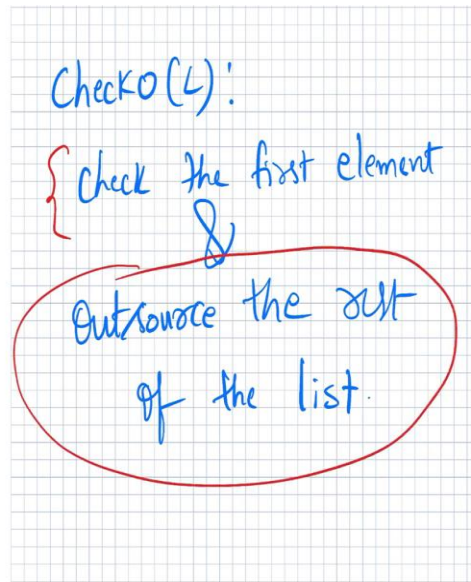 Check0(L):
Check the first element
&
Outsource the rest
of the list.